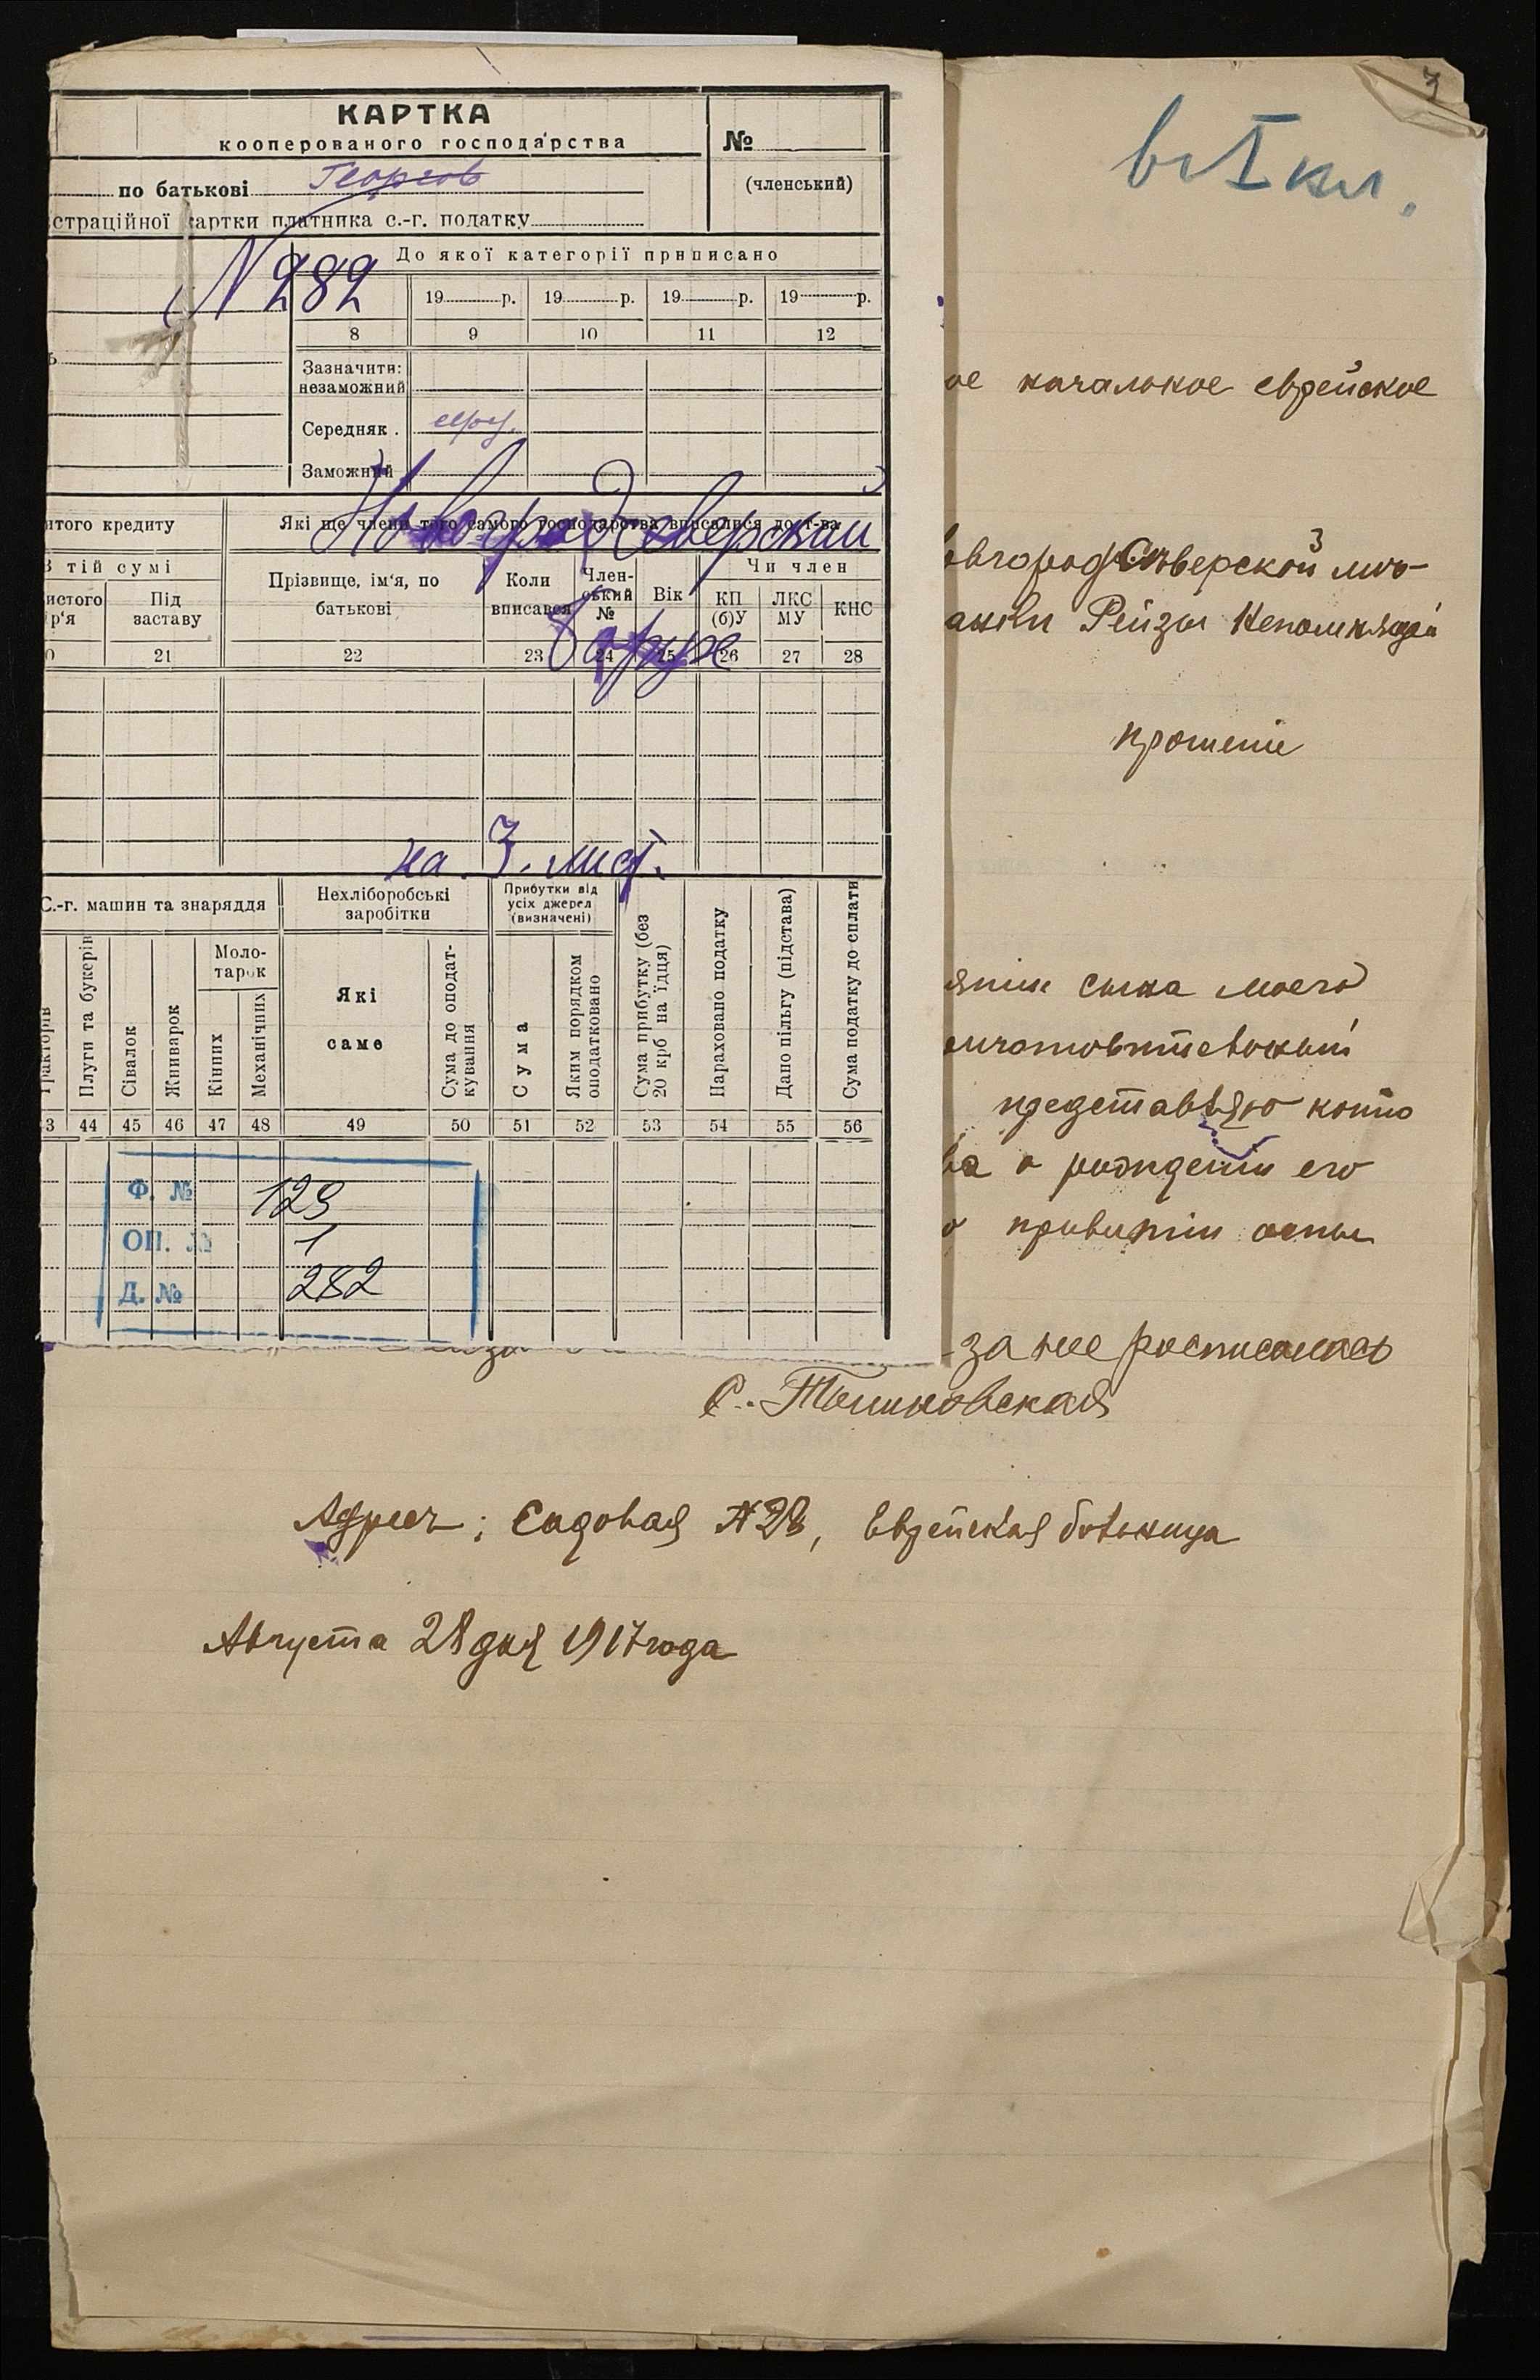 КАРТКА
кооперованого господарства
№
(членський)
по батькові
страційної картки платника с.-г. податку
N 282
До якої категорії приписано
19 р. 19 р. 19 р. 19 р.
8 9 10 11 12
Зазначити:
незаможний
Середняк . серед.
Заможний
Новоград Северский
итого кредиту
Які ще члени того самого господарства вписалися до т-ва
В тій сумі
Прізвище, ім'я, по батькові
Коли вписався
Членський №
Вік
Чи член
истого
р'я
Під заставу
КП (б)У
ЛКС МУ
КНС
0 21 22 23 24 25 26 27 28
Борух
на 3. лист.
С.-г. машин та знаряддя
Нехліборобські заробітки
Прибутки від усіх джерел (визначені)
Сума прибутку (без 20 крб на їдця)
Нараховано податку
Дано пільгу (підстава)
Сума податку до сплати
Тракторів
Плуги та букерів
Сівалок
Жниварок
Молотарок
Кінних
Механічних
Які саме
Сума до оподаткування
Сума
Яким порядком оподатковано
3 44 45 46 47 48 49 50 51 52 53 54 55 56
Ф. № 129
ОП. № 1
Д. № 282
3
въ I кл.
ое начальное еврейское
3
овгородСѣверской мѣ-
анки Рейзы Непомнящей
прошеніе
ятіи сына моего
представляю копію
ва о рожденіи его
о привитіи оспы
за нее росписалась
Адресъ: Садовая N 28, Еврейская больница
Августа 28 дня 1917 года